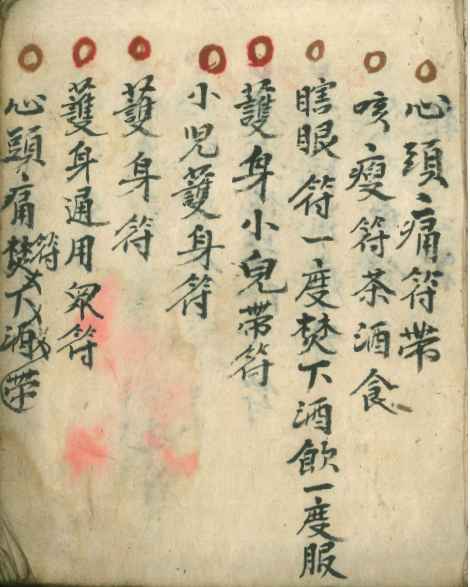 心頭痛符帶
咳瘦符茶酒食
瞎眼符一度焚下酒飲一度服
護身小兒帶符
小児護身符
護身符
護身通用眾符
心頭痛符焚下酒帶